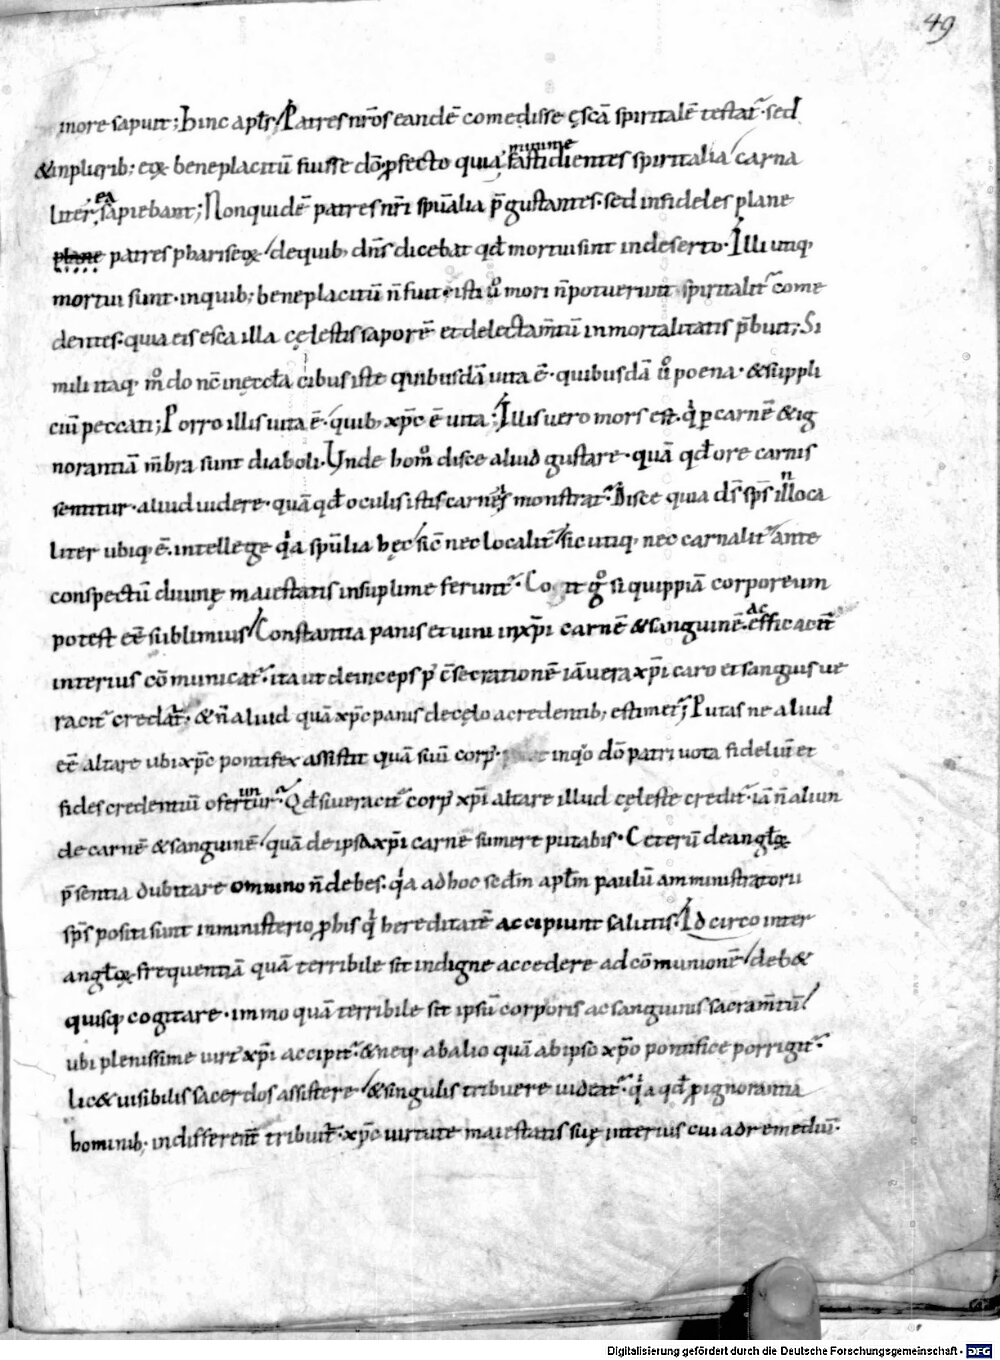 49
more sapuit; Hinc apłs/ Patres nr̄os eandē comedisse ęscā spiritalē testat᷑. sed
& inplurib; eoꝝ beneplacitū fuisse dō. ꝓfecto quia minime fastidientes spiritalia/ carna
liter ea sapiebant; Nonquidē patres nr̄i spūalia p̄gustantes. sed infideles plane
plane patres phariseoꝝ/ dequib; dn̄s dicebat qđ mortui sint indeserto. Illi utiq;
mortui sunt. inquib; beneplacitū n̄ fuit. isti ů mori n̄ potuerunt spiritalit᷑ come
dentes. quia eis esca illa cęlestis saporē et delectam̄tū inmortalitatis p̄buit; Si
mili itaq; m̊do nc̄ inęccła cibus iste quibusdā uita ē. quibusdā ů poena. & suppli
ciū peccati; Porro illis uita ē. quib; xp̄c ē uita; Illis uero mors est. qͥ ꝑ carnē & ig
norantiā m̄bra sunt diaboli. Unde hom̊ disce aliud gustare. quā qđ ore carnis
sentitur. aliud uidere. quā qđ oculis istis carnis monstrat᷑. Disce quia dš sps̄ inlloca
liter ubiq; ē. intellege qͥa spūalia hęc/ sic̄ nec localit᷑/ sic utiq; nec carnalit᷑ ante
conspectū diuinę maiestatis insuplime ferunt᷑. Cogit g̊ si quippiā corporeum
potest eē sublimius/ Constantia panis et uini inxp̄i carnē & sanguinē. ac efficacit᷑
interius cōmunicat᷑. ita ut deinceps p᷒ c̄secrationē iā uera xp̄i caro et sanguis ue
racit᷑ credat᷑. & n̄ aliud quā xp̄c panis decęlo acredentib; estimet᷑; Putas ne aliud
eē altare ubi xp̄c pontifex assistit quā suū corp᷒. inqͦ dō patri uota fideliū et
fides credentiū ofertur un᷑. Qđ si ueracit᷑ corp᷒ xp̄i altare illud cęleste credit᷑. iā n̄ aliun
de carnē & sanguinē/ quā de ipsa xp̄i carne sumere putabis. Ceterū de angłoꝝ
p̄sentia dubitare omnino n̄ debes. qͥa adhoc sedm̄ apłm paulū amministratorii
sps̄ positi sunt inministerio ꝓ his qͥ hereditatē accipiunt salutis. Id circo inter
angłoꝝ frequentiā quā terribile sit indigne accedere ad cōmunionē/ deb&
quisq; cogitare. immo quā terribile sit ipsū corporis ac sanguinis sacram̄tū/
ubi plenissime uirt᷒ xp̄i accipit᷑. & neq; abalio quā abipso xp̄o pontifice porrigit᷑.
lic& uisibilis sacerdos assistere/ & singulis tribuere uideat᷑. qͥa qđ ꝑ ignorantia
hominib; indifferent᷑ tribuit᷑. xp̄c uirtute maiestatis suę interius cui adremediū.
Digitalisierung gefördert durch die Deutsche Forschungsgemeinschaft - DFG